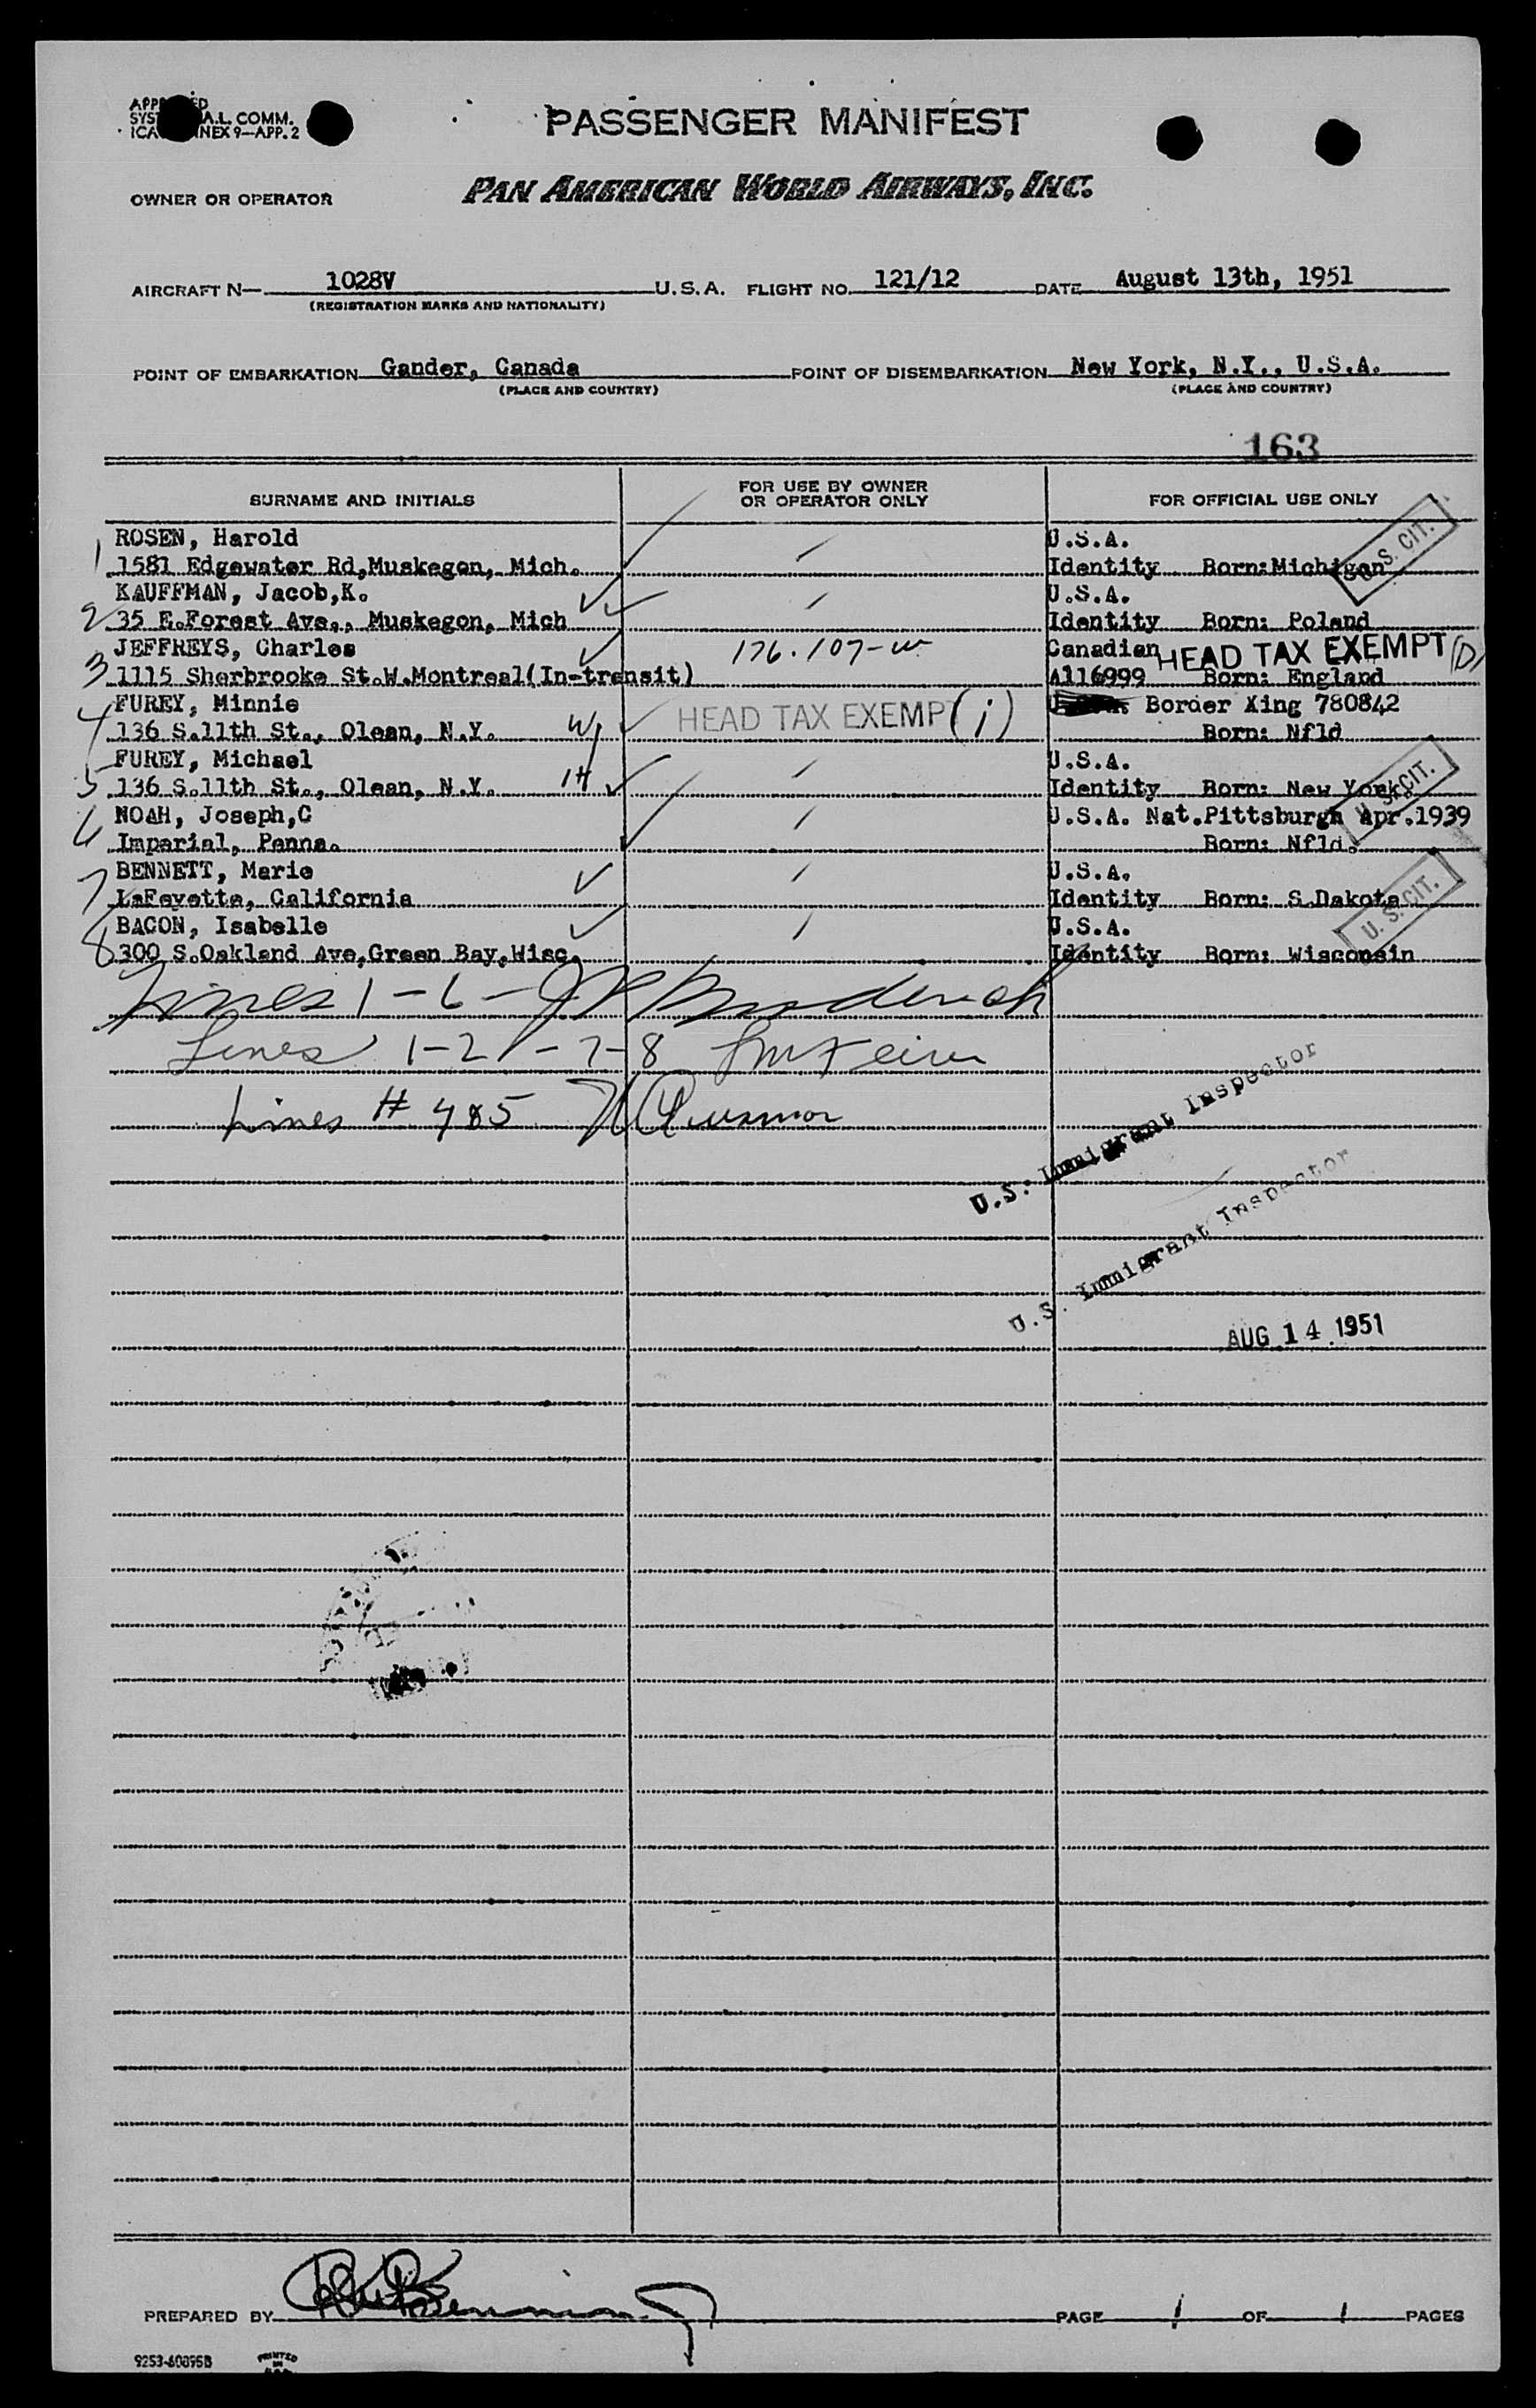 PASSENGER MANIFEST
A.L. COMM.
NEX 9—APP. 2
OWNER OR OPERATOR PAN AMERICAN WORLD AIRWAYS, INC.
AIRCRAFT N— 1028V U.S.A. FLIGHT NO. 121/12 DATE August 13th, 1951
(REGISTRATION MARKS AND NATIONALITY)
POINT OF EMBARKATION Gander, Canada POINT OF DISEMBARKATION New York, N.Y., U.S.A.
(PLACE AND COUNTRY) (PLACE AND COUNTRY)
163
SURNAME AND INITIALS FOR USE BY OWNER OR OPERATOR ONLY FOR OFFICIAL USE ONLY
1 ROSEN, Harold U.S.A. U.S. CIT.
1581 Edgewater Rd,Muskegon, Mich. Identity Born:Michigan
2 KAUFFMAN, Jacob,K. U.S.A.
35 E.Forest Ave., Muskegon, Mich Identity Born: Poland
3 JEFFREYS, Charles 176.107-w Canadian HEAD TAX EXEMPT (D)
1115 Sherbrooke St.W.Montreal(In-transit) A116999 Born: England
4 FUREY, Minnie HEAD TAX EXEMPT (i) Border Xing 780842
136 S.11th St., Olean, N.Y. Born: Nfld
5 FUREY, Michael U.S.A. U.S. CIT.
136 S.11th St., Olean, N.Y. Identity Born: New York.
6 NOAH, Joseph,C U.S.A. Nat.Pittsburgh Apr.1939
Imperial, Penna. Born: Nfld.
7 BENNETT, Marie U.S.A. U.S. CIT.
LaFayette, California Identity Born: S.Dakota
8 BACON, Isabelle U.S.A.
300 S.Oakland Ave,Green Bay,Wisc. Identity Born: Wisconsin
Lines 1-6-
Lines 1-2-7-8
Lines # 4&5
U.S. Immigrant Inspector
U.S. Immigrant Inspector
AUG 14 1951
PREPARED BY PAGE 1 OF 1 PAGES
9253-60895B PRINTED IN